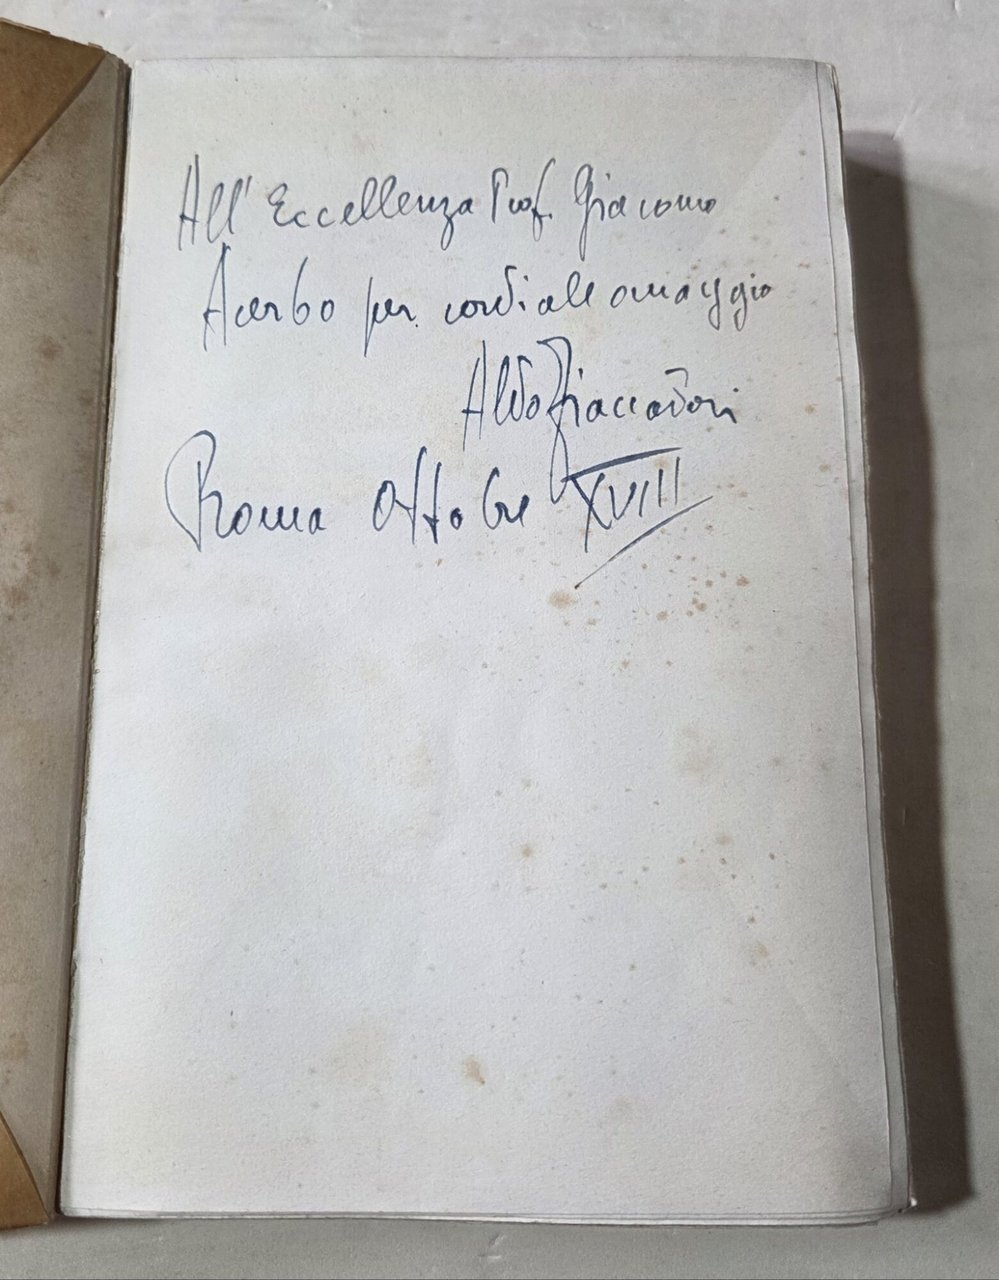 All'Eccellenza Prof. Giacomo
Acerbo per cordiale omaggio
Aldo Ziaccadori
Roma Ottobre XVIII